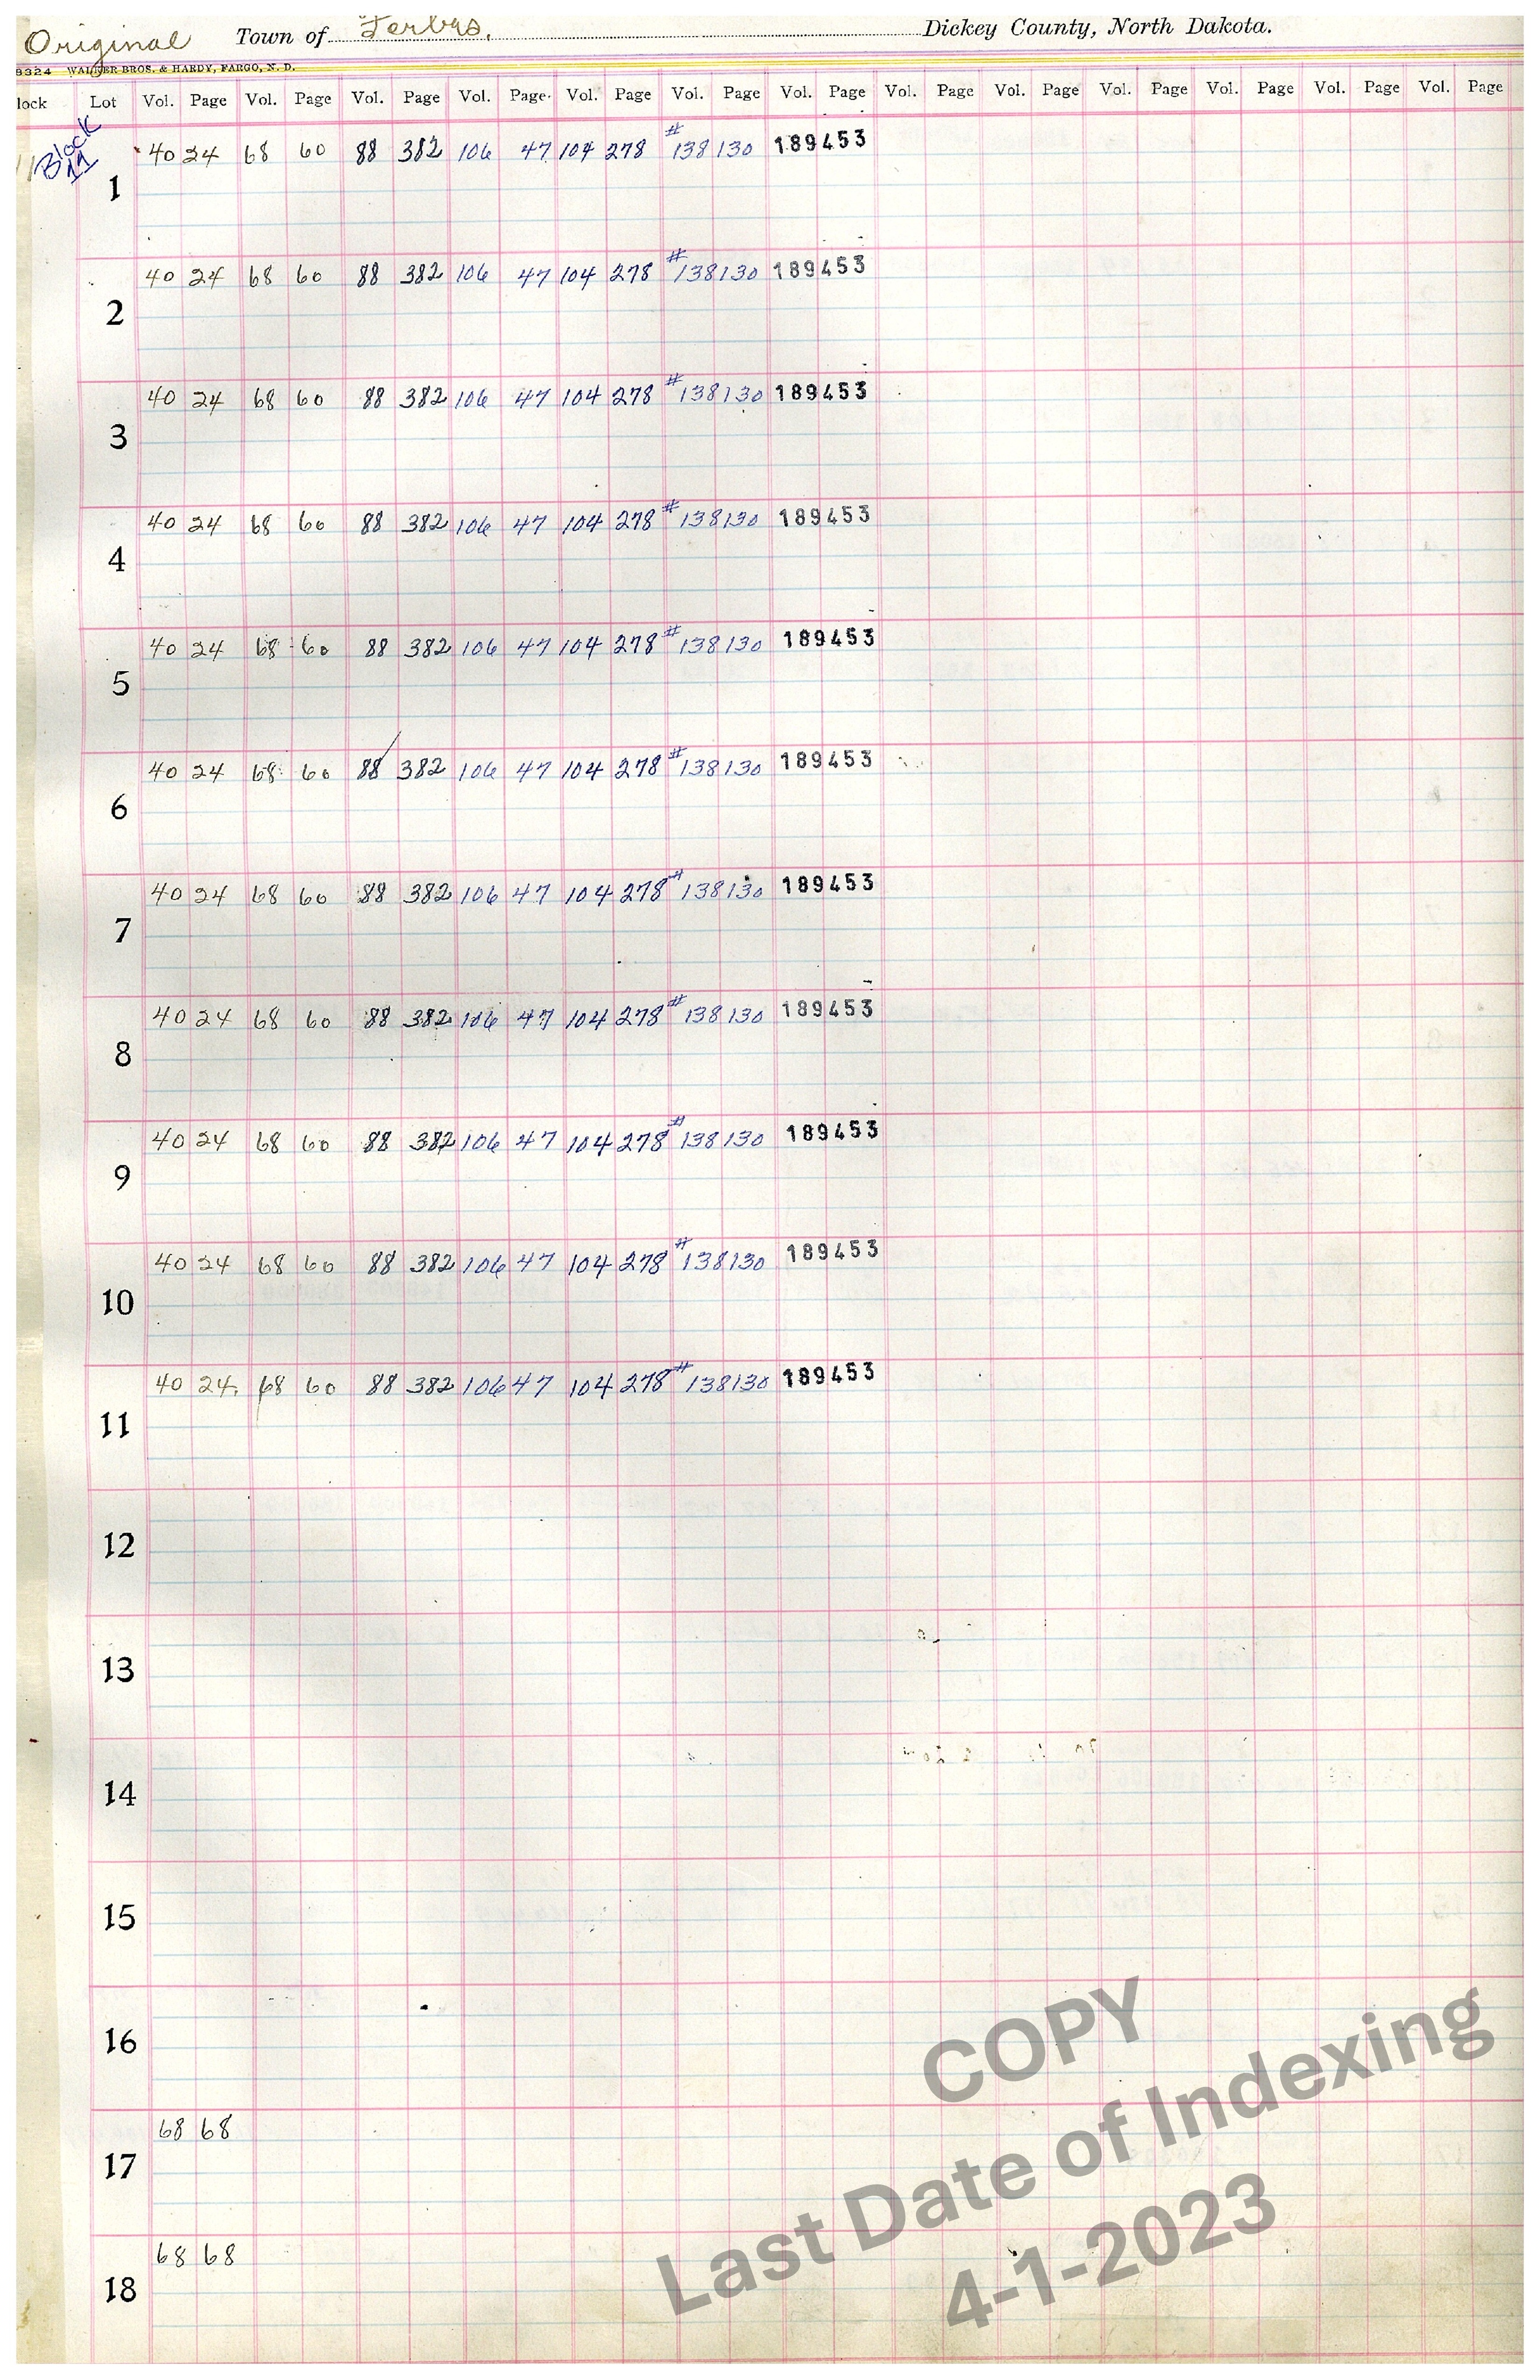 Original Town of Forbes. Dickey County, North Dakota.
9324 WALKER BROS. & HARDY, FARGO, N. D.
lock Lot Vol. Page Vol. Page Vol. Page Vol. Page Vol. Page Vol. Page Vol. Page Vol. Page Vol. Page Vol. Page Vol. Page Vol. Page Vol. Page
Block 11
40 24 68 60 88 382 106 47 104 278 #138130 189453
1
40 24 68 60 88 382 106 47 104 278 #138130 189453
2
40 24 68 60 88 382 106 47 104 278 #138130 189453
3
40 24 68 60 88 382 106 47 104 278 #138130 189453
4
40 24 68 60 88 382 106 47 104 278 #138130 189453
5
40 24 68 60 88 382 106 47 104 278 #138130 189453
6
40 24 68 60 88 382 106 47 104 278 #138130 189453
7
40 24 68 60 88 382 106 47 104 278 #138130 189453
8
40 24 68 60 88 382 106 47 104 278 #138130 189453
9
40 24 68 60 88 382 106 47 104 278 #138130 189453
10
40 24 68 60 88 382 106 47 104 278 #138130 189453
11
12
13
14
15
16
68 68
17
68 68
18
COPY
Last Date of Indexing
4-1-2023